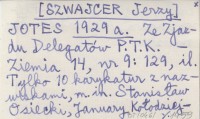 [SZWAJCER Jerzy]
JOTES 1929 a. Ze Zjaz-
du Delegatów P.T.K. –
Ziemia 14, nr 9: 129, il.
Tylko 10 karykatur z naz-
wiskami, m.in. Stanisław
Osiecki, January Kołodziej-